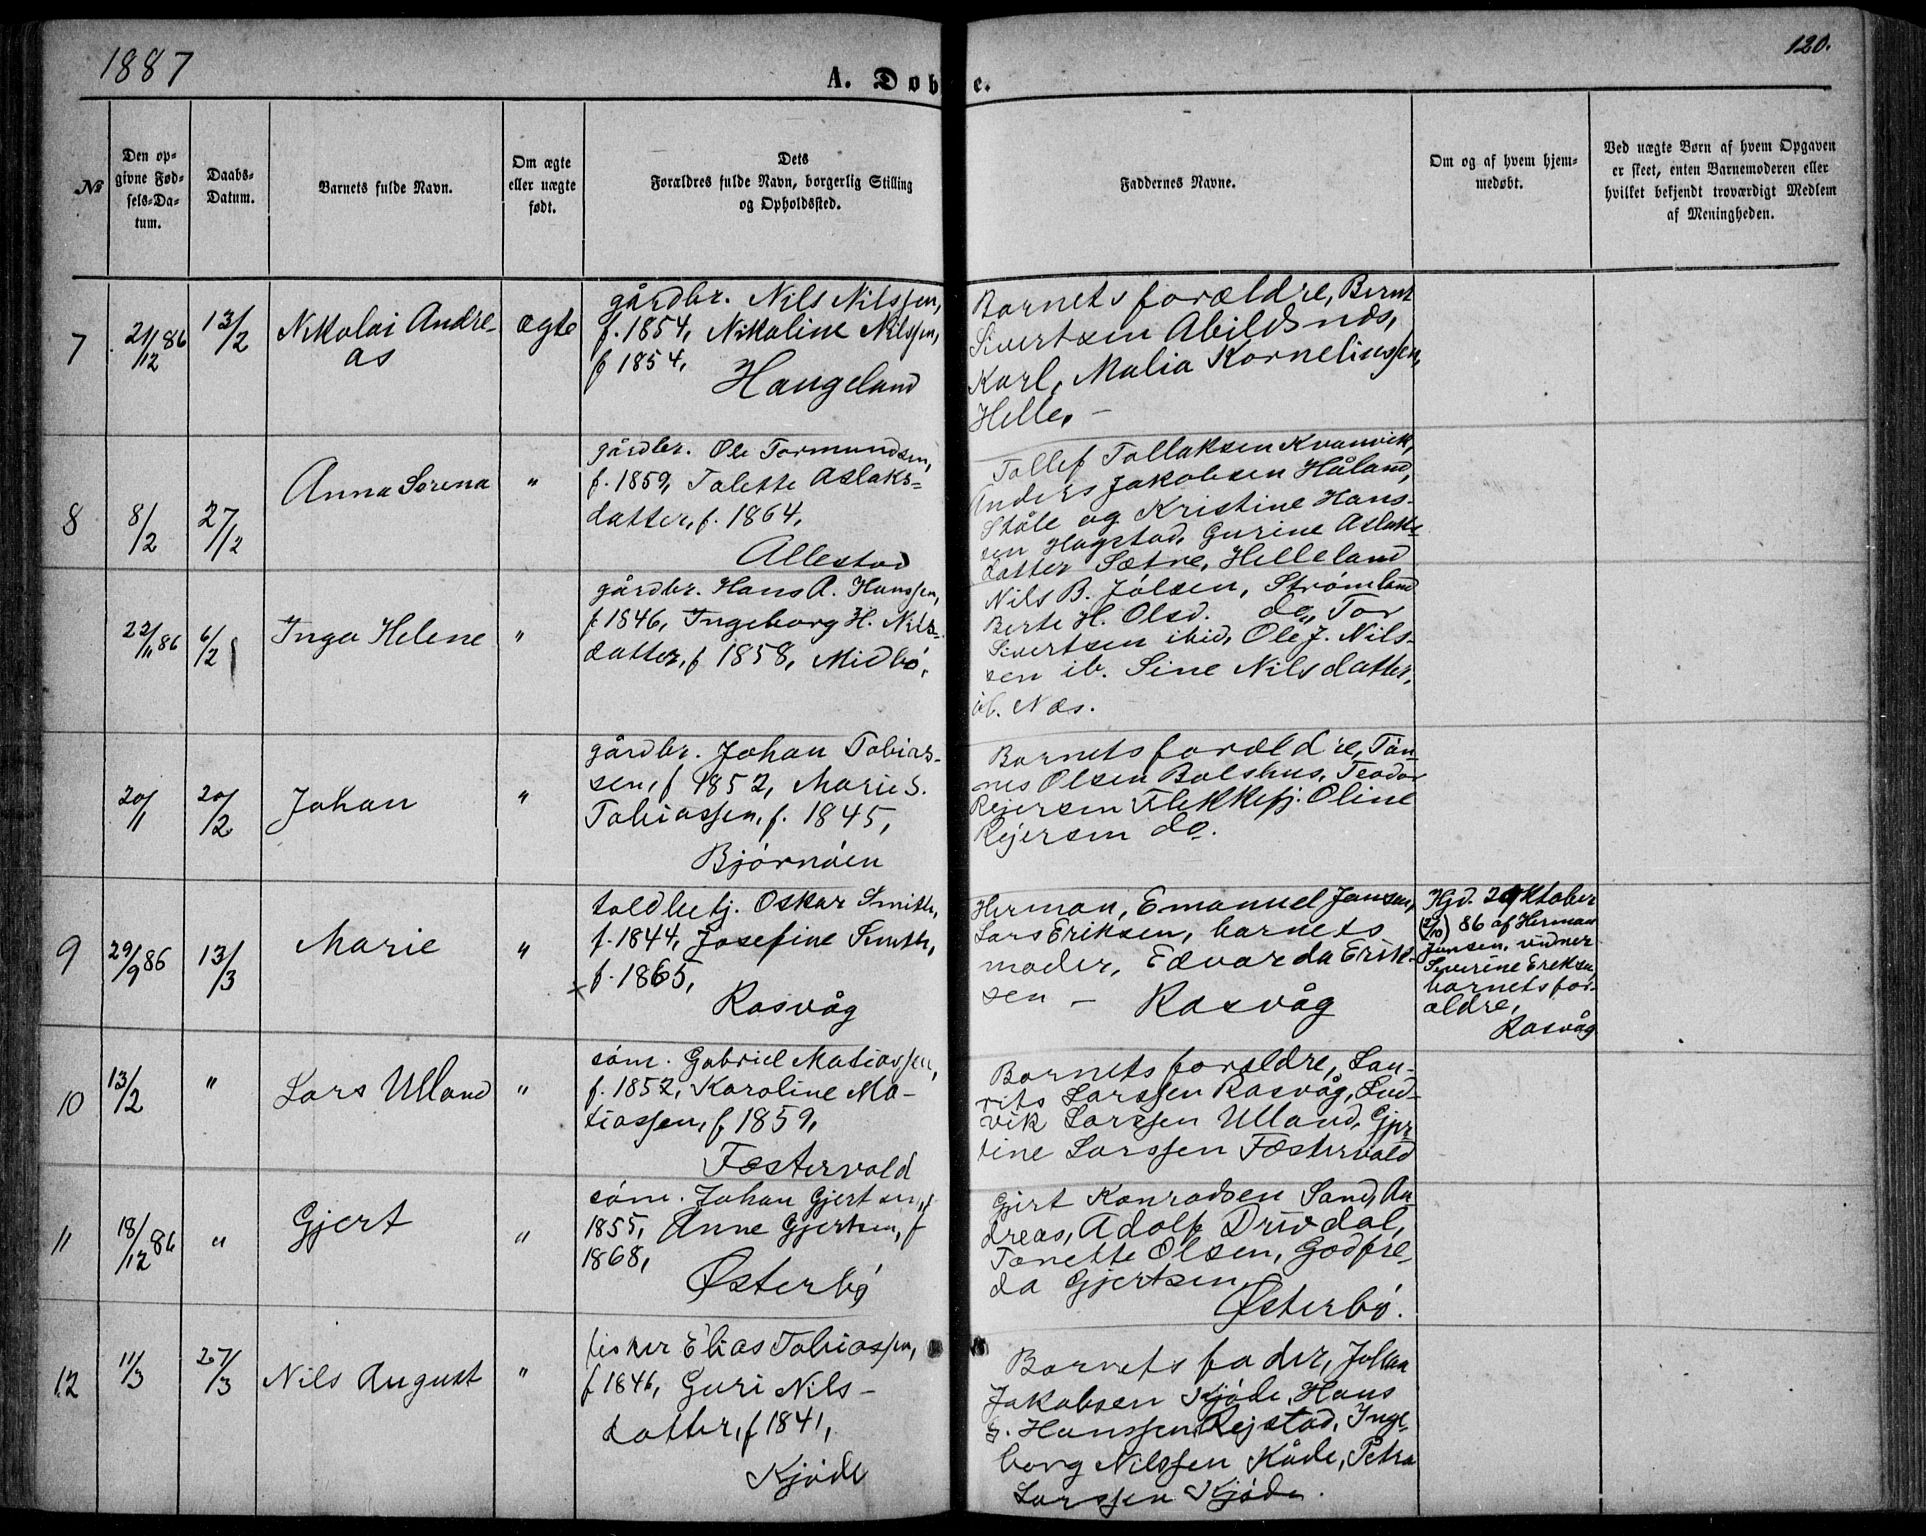 1887
120.
A. Døbte.
No
Den op-
givne Fød-
sels-Da-
tum.
Daabs-
Datum.
Barnets fulde Navn.
Om ægte
eller uægte
født.
Dets
Forældres fulde Navn, borgerlig Stilling
og Opholdssted.
Faddernes Navne.
Om og af hvem hjem-
medøbt.
Ved uægte Børn af hvem Opgaven
er skeet, enten Barnemoderen eller
hvilket bekjendt troværdigt Medlem
af Menigheden.
7
21/12 86
13/2
Nikolai Andre-
as
ægte
gårdbr. Nils Nilssen,
f. 1854, Nikoline Nilssen,
f 1854,
Haugeland
Barnets forældre, Bernt
Sivertsen Abildsnæs,
Karl, Malia Korneliussen,
Helle, –
8
8/2
27/12
Anna Sorena
"
gårdbr. Ole Tormundsen,
f. 1859, Talette Aslaks-
datter, f. 1864,
Allestad
Tollef Tollaksen Kvanvik,
Anders Jakobsen Håland,
Ståle og Kristine Hans-
sen Hagstad, Gurine Aslaks-
datter Sætre, Helleland
22/11 86
6/2
Inga Helene
"
gårdbr. Hans A. Hanssen,
f. 1846, Ingeborg H. Nils-
datter, f 1858, Midbø,
Nils B. Jølsen, Strømland
Berte H. Olsd. do, Tor
Sivertsen ibid, Ole J. Nils-
sen ib. Sine Nilsdatter,
ib. Næs.
20/1
20/2
Johan
"
gårdbr. Johan Tobias-
sen, f 1852, Marie S.
Tobiassen, f. 1845,
Bjørnøen
Barnets forældre, Tøn-
nes Olsen Bolshus, Teodor
Rejersen Flekkefj. Oline
Rejersen do.
9
29/9 86
13/3
Marie
"
toldbetj. Oskar Smith,
f. 1844, Josefine Smith,
f. 1865,
Rasvåg
Herman, Emanuel Jansen,
Lars Eriksen, barnets
moder, Edvarda Erik-
sen – Rasvåg
Hjd. 2 Oktober
(2/10) 86 af Herman
Jansen, vidner
Severine Eriksen,
barnets for-
ældre,
Rasvåg
10
13/2
"
Lars Ulland
"
søm. Gabriel Matiassen,
f. 1852, Karoline Ma-
tiassen, f 1859,
Fæstervold
Barnets forældre, Lau-
rits Larssen Rasvåg, Lud-
vik Larssen Ulland, Gjer-
tine Larssen Fæstervold
11
18/12 86
"
Gjert
"
søm. Johan Gjertsen, f
1855, Anne Gjertsen, f
1868,
Østerbø
Gjert Konradsen Sand, An-
dreas, Adolf Drivdal,
Tonette Olsen, Godfre-
da Gjertsen
Østerbø.
12
11/3
27/3
Nils August
"
fisker Elias Tobiassen,
f 1846, Guri Nils-
datter, f 1841,
Kjøde
Barnets fader, Johan
Jakobsen Kjøde, Hans
G. Hanssen Rejstad, Inge-
borg Nilssen Kåde, Petra
Larssen Kjøde.